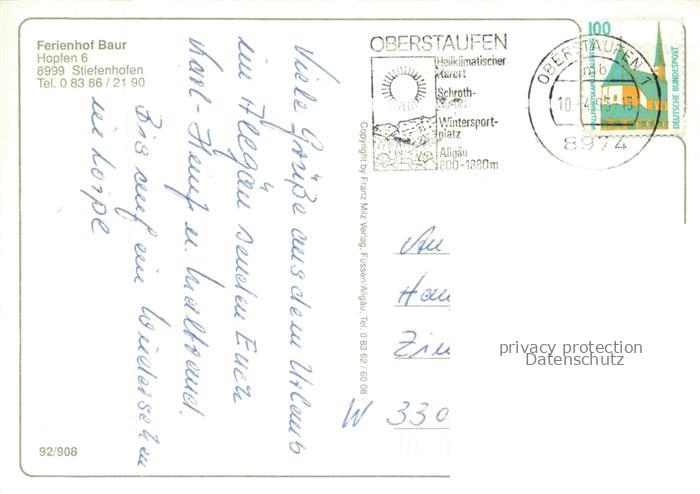 Ferienhof Baur
Hopfen 6
8999 Stiefenhofen
Tel. 0 83 86 / 21 90
Viele Grüße aus dem Urlaub
im Allgäu senden Euch
Karl-Heinz u. Waltraud.
Bis auf ein Wiedersehen
in Loipe
92/908
Copyright by Franz Milz Verlag, Füssen/Allgäu, Tel. 0 83 62 / 60 08
OBERSTAUFEN
Heilklimatischer
Kurort
Schroth-
Wintersport-
platz
Allgäu
800-1880m
OBERSTAUFEN 1
mb
8974
100
DEUTSCHE BUNDESPOST
An
Ha
Zi
W 330
privacy protection
Datenschutz